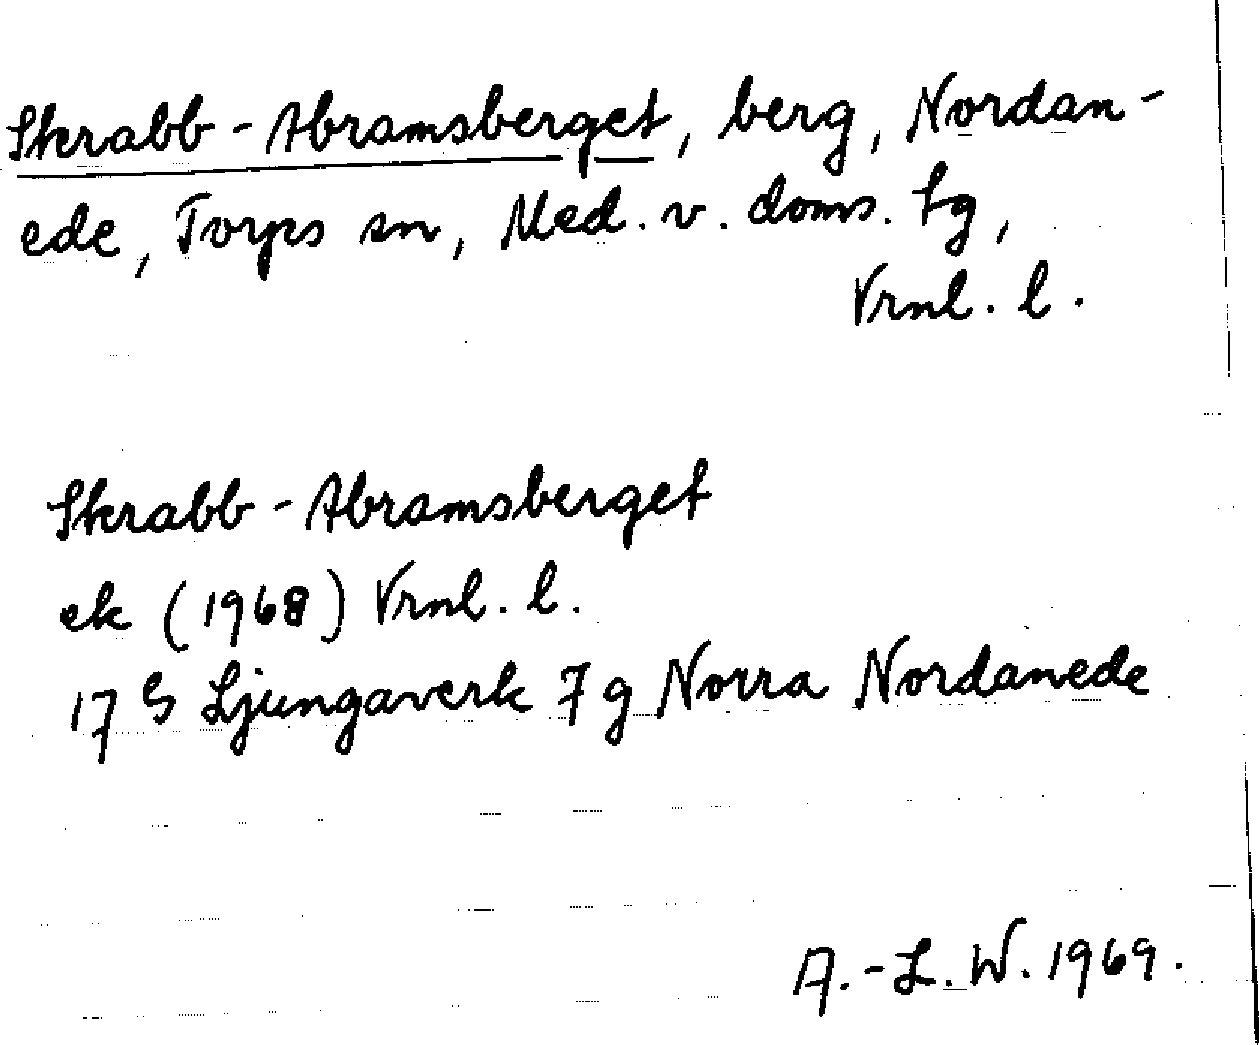 Skrabb-Abramsberget, berg, Nordan-
ede, Torps sn, Med. v. doms. tg,
Vrnl. l.
Skrabb-Abramsberget
ek (1968) Vrnl. l.
17 G Ljungaverk 7 g Norra Nordanede
A.-L. W. 1969.